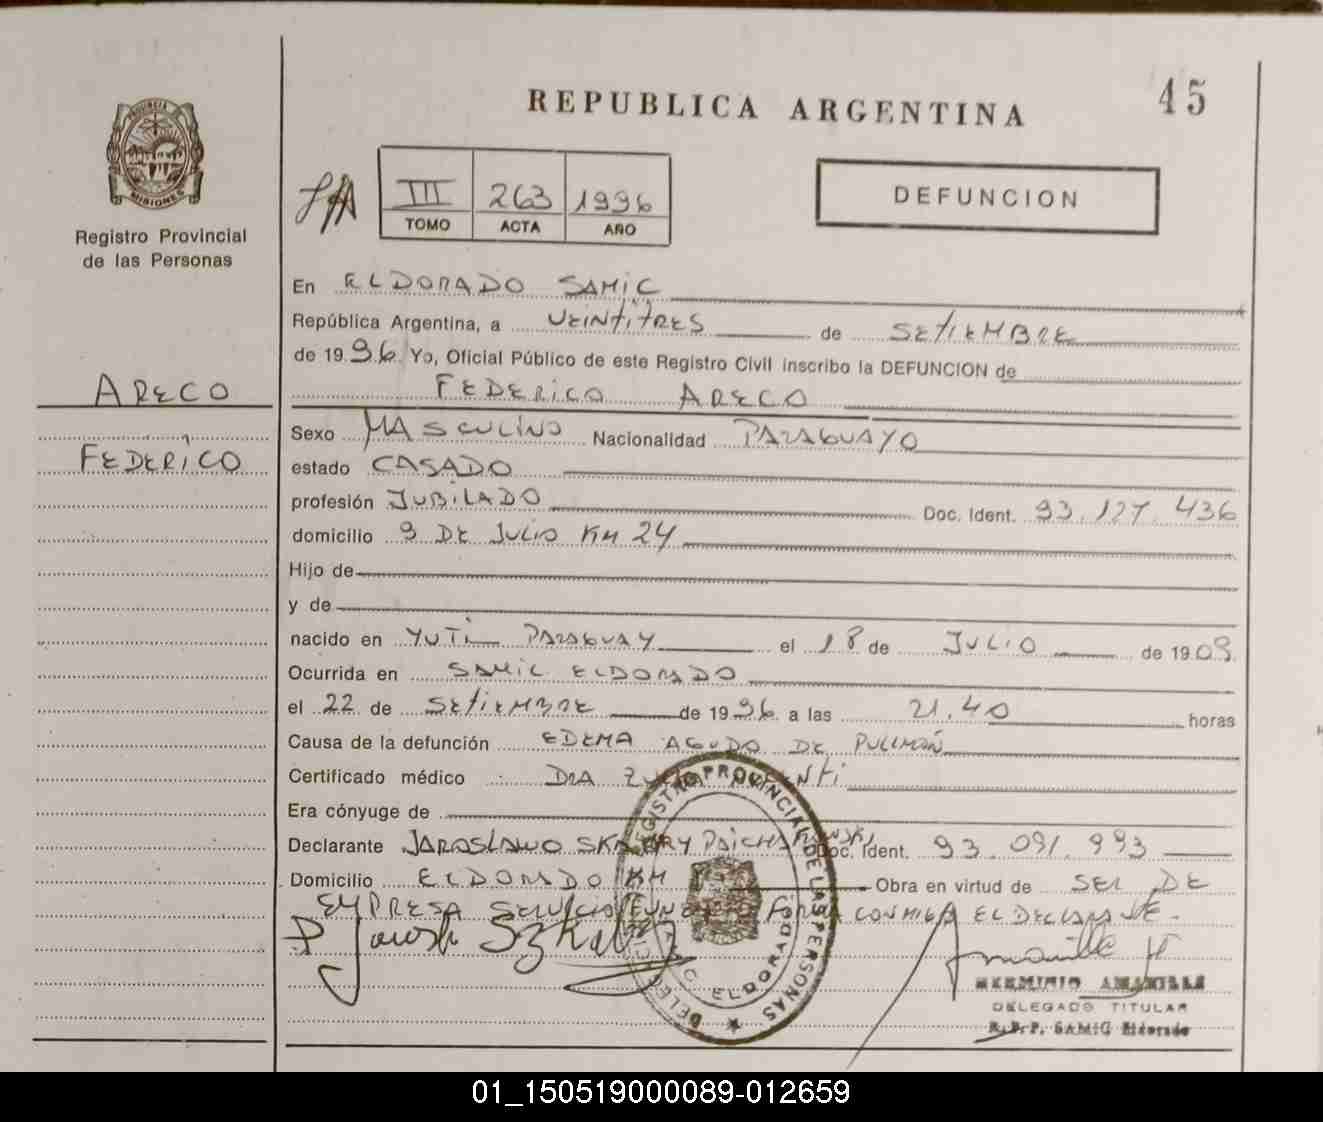 REPUBLICA ARGENTINA
45
PROVINCIA DE
MISIONES
Registro Provincial
de las Personas
III 263 1996
TOMO ACTA AÑO
DEFUNCION
En ELDORADO SAMIC
República Argentina, a VEINTITRES de SETIEMBRE
de 1996. Yo, Oficial Público de este Registro Civil inscribo la DEFUNCION de
ARECO
FEDERICO ARECO
FEDERICO
Sexo MASCULINO Nacionalidad PARAGUAYO
estado CASADO
profesión JUBILADO Doc. Ident. 93.127.436
domicilio 9 DE JULIO KM 24
Hijo de
y de
nacido en YUTI PARAGUAY el 18 de JULIO de 1909.
Ocurrida en SAMIC ELDORADO
el 22 de SETIEMBRE de 1996. a las 21.40 horas
Causa de la defunción EDEMA AGUDO DE PULLMON
Certificado médico DRA
Era cónyuge de
Declarante JAROSLAWO Doc. Ident. 93.091.993
Domicilio ELDORADO KM Obra en virtud de SER DE
EMPRESA SERVICIO FIRMA CONMIGO EL DECLARANTE.
REGISTRO PROVINCIAL DE LAS PERSONAS
ELDORADO
HERMINIO AMARILLA
DELEGADO TITULAR
R.P.P. SAMIC Eldorado
01_150519000089-012659